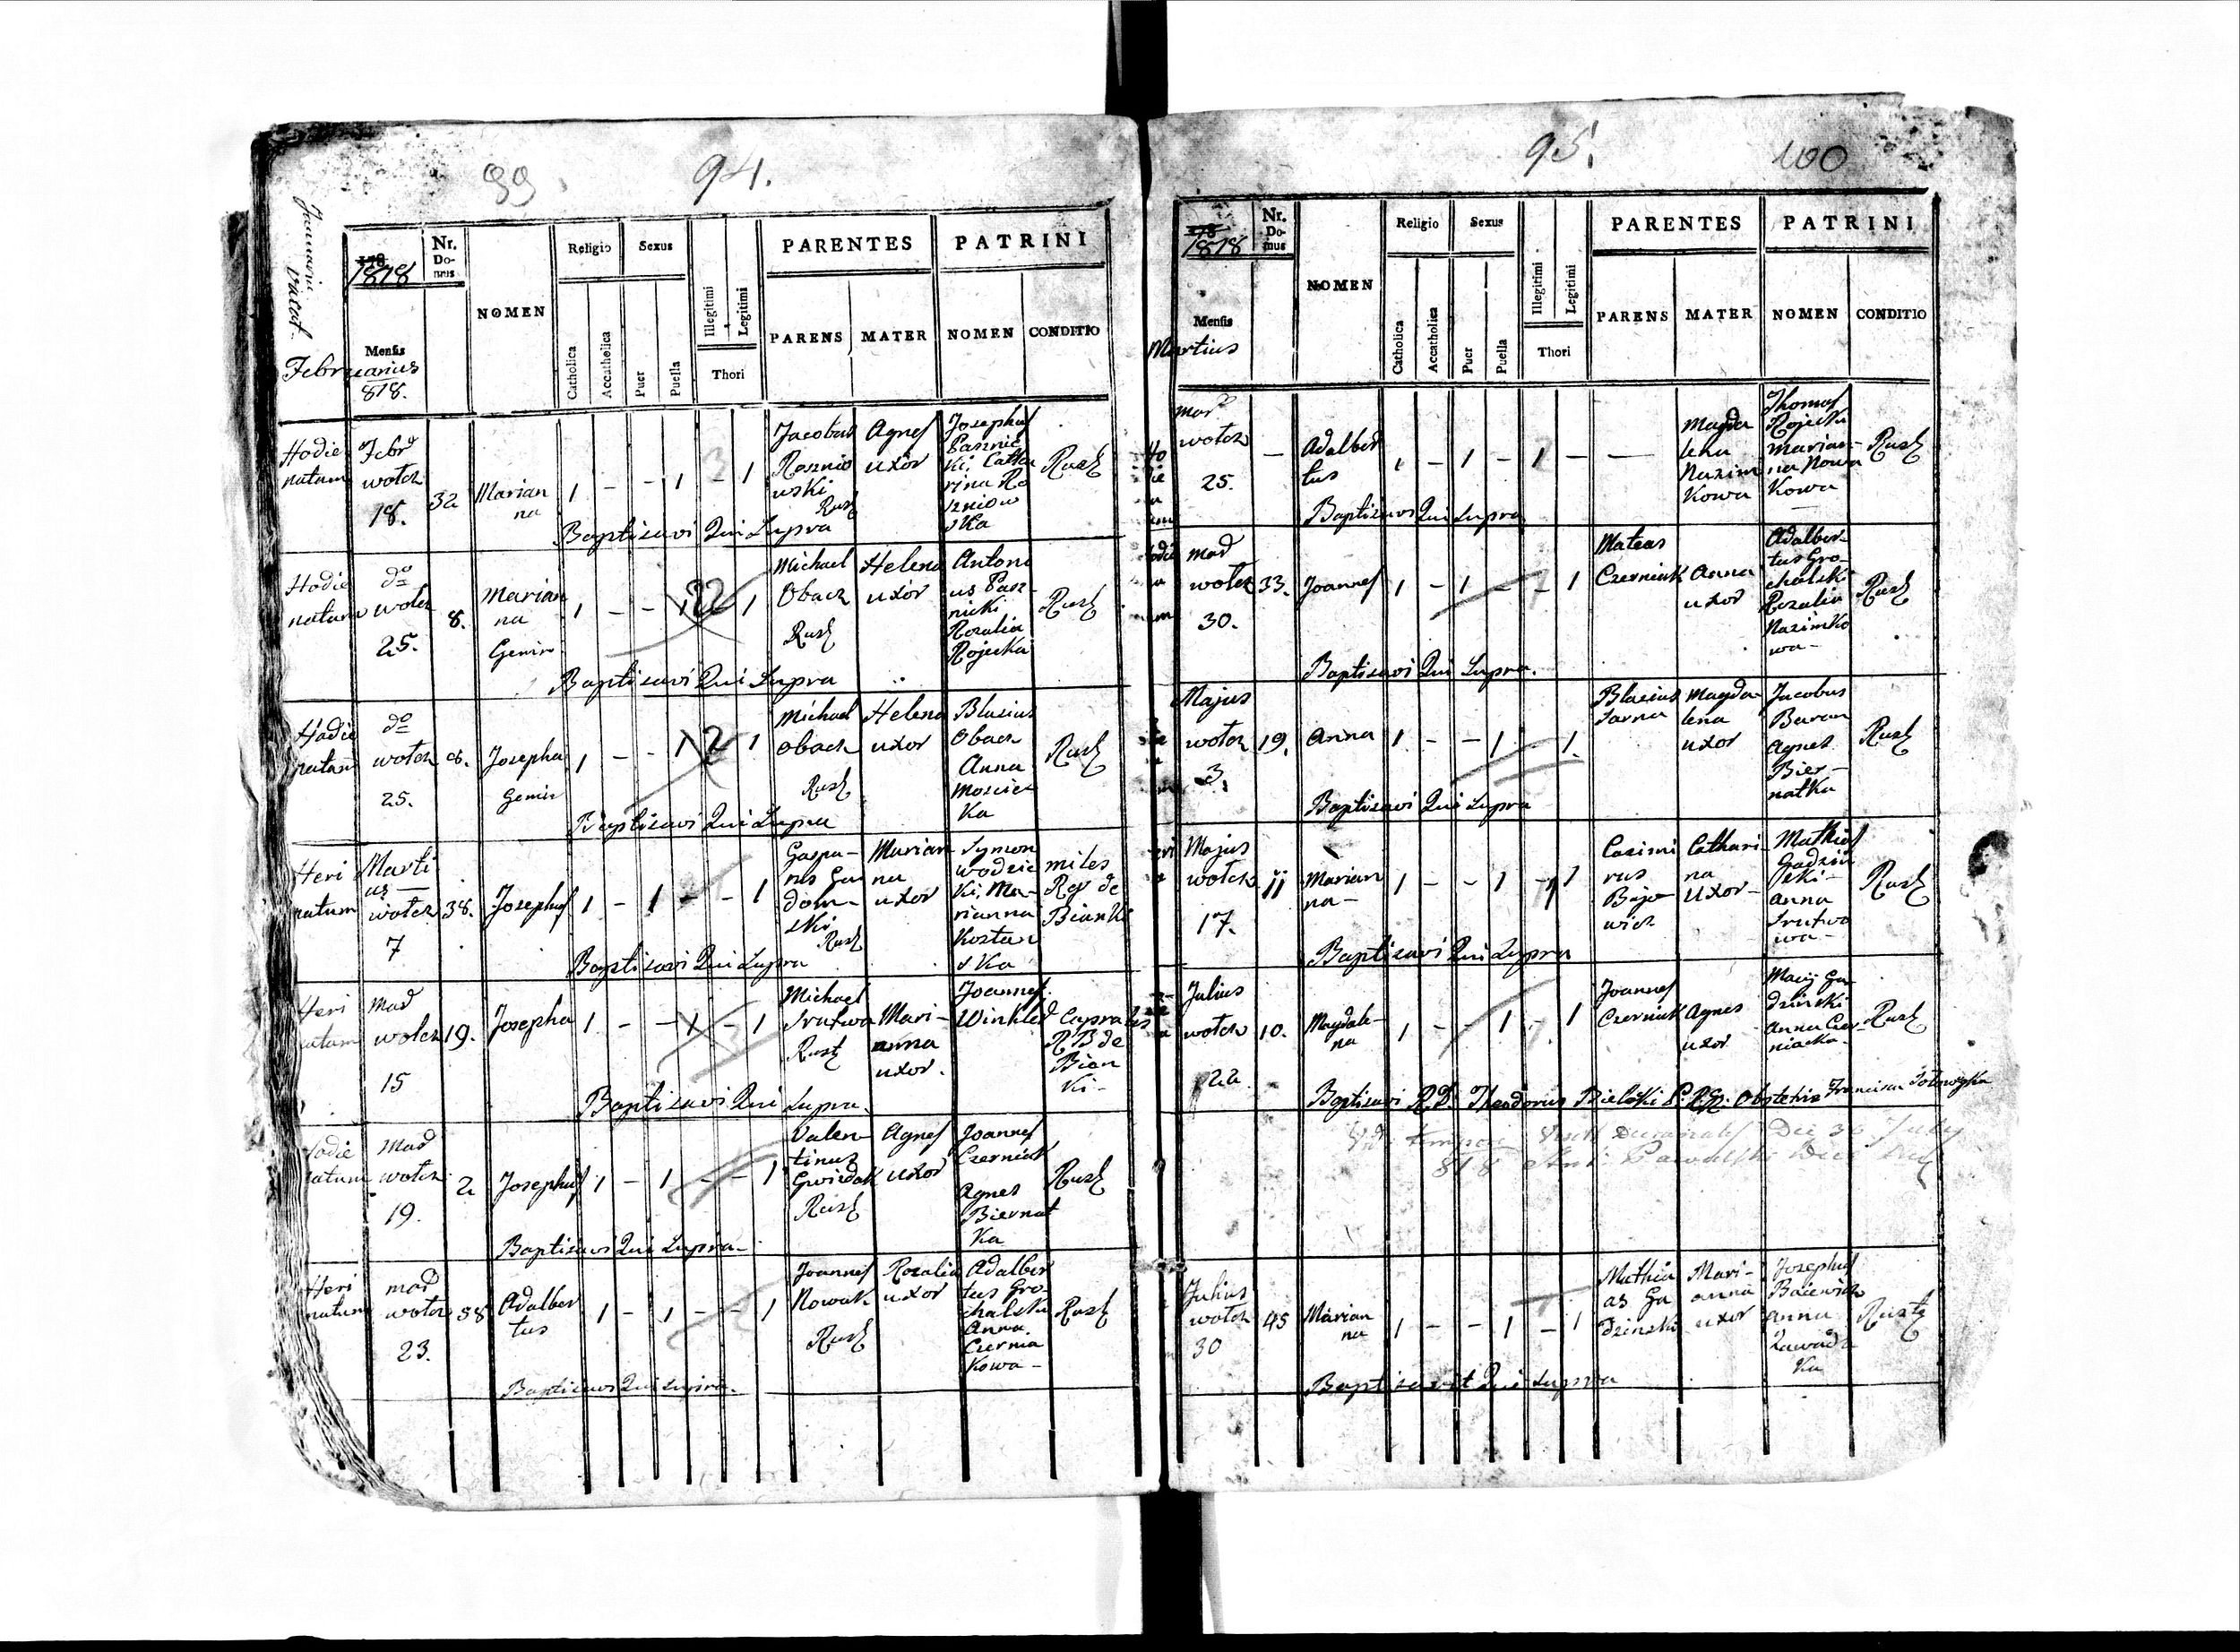 99 94.
Januarii vacat.
1818
Nr. Domus
NOMEN
Religio
Sexus
Catholica
Accatholica
Puer
Puella
Illegitimi
Legitimi
Thori
PARENTES
PATRINI
PARENS
MATER
NOMEN
CONDITIO
Mensis
Februarius
818.
Hodie natum
Febr
wotch
18.
32
Marian
na
1 - - 1 - 1
Jacobus
Roznio
wski
Rust
Agnes
uxor
Josephus
Paznic
ki. Catha
rina Ro
zniow
ska
Rust
Baptisavi Qui Supra
Hodie natum
do
wotch
25.
8.
Marian
na
Gemin
1 - - 1 - 1
Michael
Obach
Rust
Helena
uxor
Antoni
us Paz
nicki
Rozalia
Rojecka
Rust
Baptisavi Qui Supra
Hodie natam
do
wotch
25.
8.
Josepha
Gemin
1 - - 1 1
Michael
Obach
Rust
Helena
uxor
Blasius
Obach
Anna
Moscic
ka
Rust
Baptisavi Qui Supra
Heri natum
Marti
us
wotch
7
38.
Josephus
1 - 1 - - 1
Gaspa-
rus Ga
dom-
ski
Rust
Marian
na
uxor
Symon
Wodzic
ki. Ma-
rianna
Kostan
ska
miles
Reg de
Bianki
Baptisavi Qui Supra
Heri natum
Mar
wotch
15
19.
Josepha
1 - - 1 - 1
Michael
Srutwa
Rust
Mari-
anna
uxor.
Joannes
Winkler
Capralis
R B de
Bian
ki-
Baptisavi Qui Supra.
Hodie natum
Mar
wotch
19.
2
Josephus
1 - 1 - - 1
Valen
tinus
Gwizdak
Rust
Agnes
uxor
Joannes
Czerniak
Agnes
Biernat
ka
Rust
Baptisavi Qui Supra-
Heri natum
mar
wotch
23.
58
Adalber
tus
1 - 1 - - 1
Joannes
Nowak
Rust
Rozalia
uxor
Adalber
tus Gro
chalski
Anna
Czernia
kowa-
Rust
Baptisavi Qui Supra.
95. 100
1818
Nr. Domus
NOMEN
Religio
Sexus
Catholica
Accatholica
Puer
Puella
Illegitimi
Legitimi
Thori
PARENTES
PATRINI
PARENS
MATER
NOMEN
CONDITIO
Mensis
Martius
Mar
wotch
25.
-
Adalber
tus
1 - 1 - 1 -
-
Magda
lena
Nazim
kowa
Thomas
Rojecki
Marian-
na Nowa
kowa
Rust
Baptisavi Qui Supra
Mar
wotch
30.
33.
Joannes
1 - 1 - - 1
Mateas
Czerniak
Anna
uxor
Adalber-
tus Gro-
chalski
Rozalia
Nazimko
wa-
Rust
Baptisavi Qui Supra.
Majus
wotch
3.
19.
Anna
1 - - 1 1.
Blasius
Sarna
Magda-
lena
uxor
Jacobus
Baran
Agnes
Bier-
natka
Rust
Baptisavi Qui Supra
Majus
wotch
17.
11
Marian
na-
1 - - 1 - 1
Casimi
rus
Bajo
wich
Cathari-
na
uxor-
Mathias
Gadzin
ski-
Anna
Srutwo
wa-
Rust
Baptisavi Qui Supra
Julius
wotch
22
10.
Magdale-
na
1 - - 1 - 1
Joannes
Czerniak
Agnes
uxor
Macij Ga-
dzinski
Anna Czer-
niacka-
Rust
Baptisavi R.D. Theodorus Obstetrix Francisca
Die 30 July
818
Julius
wotch
30
45
Marian
na
1 - - 1 - 1
Mathia
as Ga
dzinski
Mari-
anna
uxor
Josephus
Baiewich
Anna
Zawadz
ka
Rust
Baptisavit Qui Supra